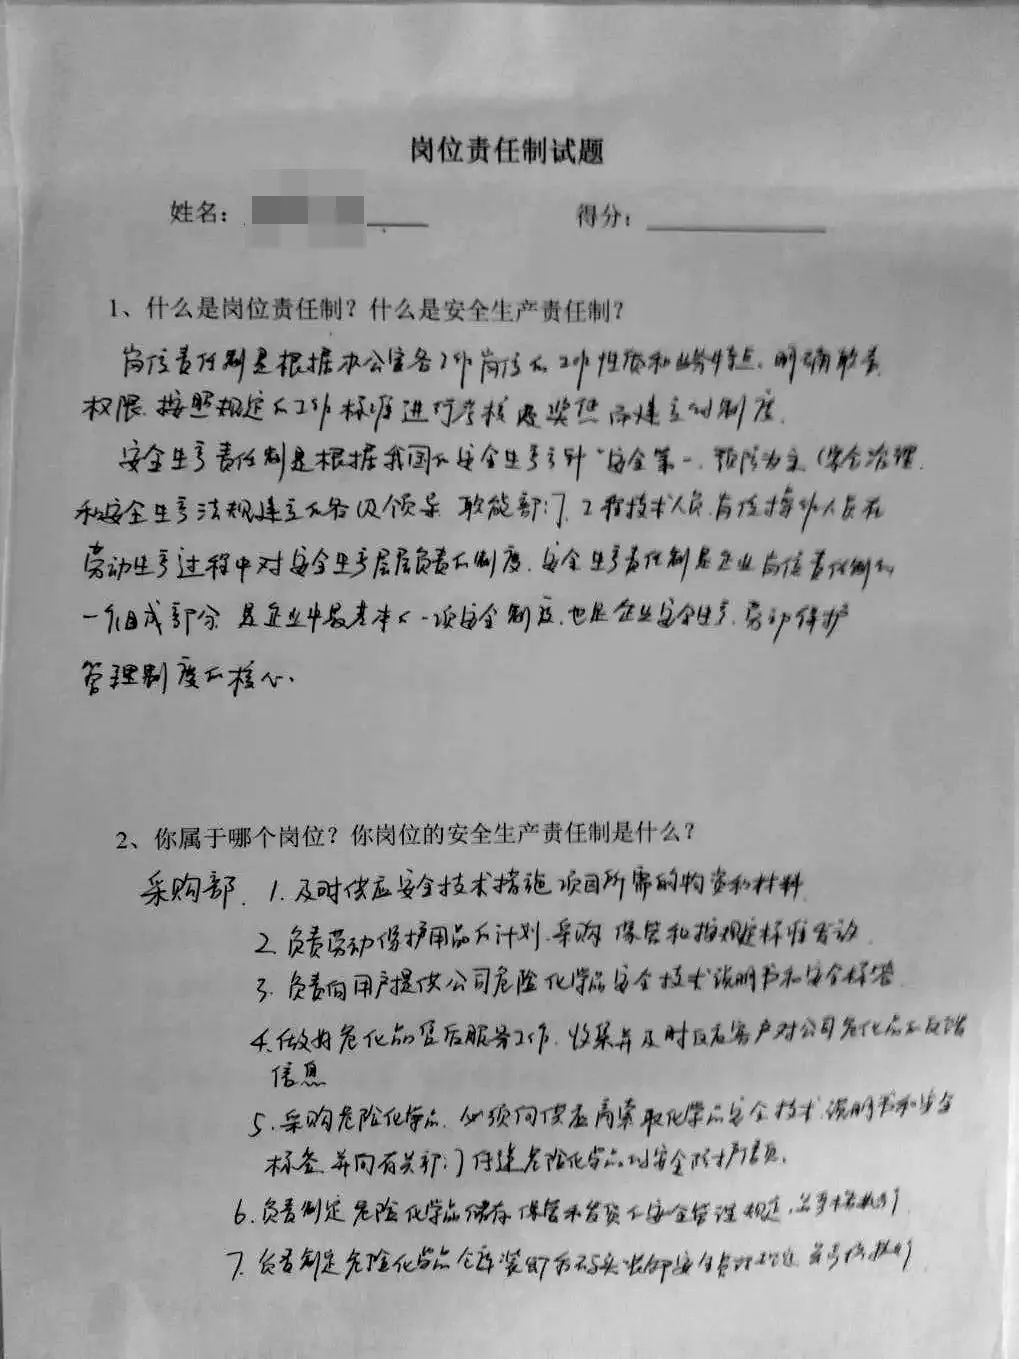 岗位责任制试题
姓名：
得分：
1、什么是岗位责任制？什么是安全生产责任制？
岗位责任制是根据办公室各工作岗位的工作性质和业务特点，明确职责
权限，按照规定的工作标准进行考核及奖惩而建立的制度。
安全生产责任制是根据我国的安全生产方针“安全第一，预防为主，综合治理
和安全生产法规建立的各级领导 职能部门，工程技术人员，岗位操作人员在
劳动生产过程中对安全生产层层负责的制度。安全生产责任制是企业岗位责任制的
一个组成部分，是企业中最基本的一项安全制度，也是企业安全生产、劳动保护
管理制度的核心。
2、你属于哪个岗位？你岗位的安全生产责任制是什么？
采购部. 1. 及时供应安全技术措施项目所需的物资和材料
2. 负责劳动保护用品的计划、采购、保管和按规定标准发放
3. 负责向用户提供公司危险化学品安全技术说明书和安全标签
4. 做好危化品售后服务工作，收集并及时反应客户对公司危化品的反馈
信息
5. 采购危险化学品，必须向供应商索取化学品安全技术说明书和安全
标签，并向有关部门传递危险化学品的安全防护
6. 负责制定危险化学品储存 保管和发货的安全管理规定，并严格执行
7. 负责制定危险化学品仓库装卸和码头装卸安全管理规定 并严格执行